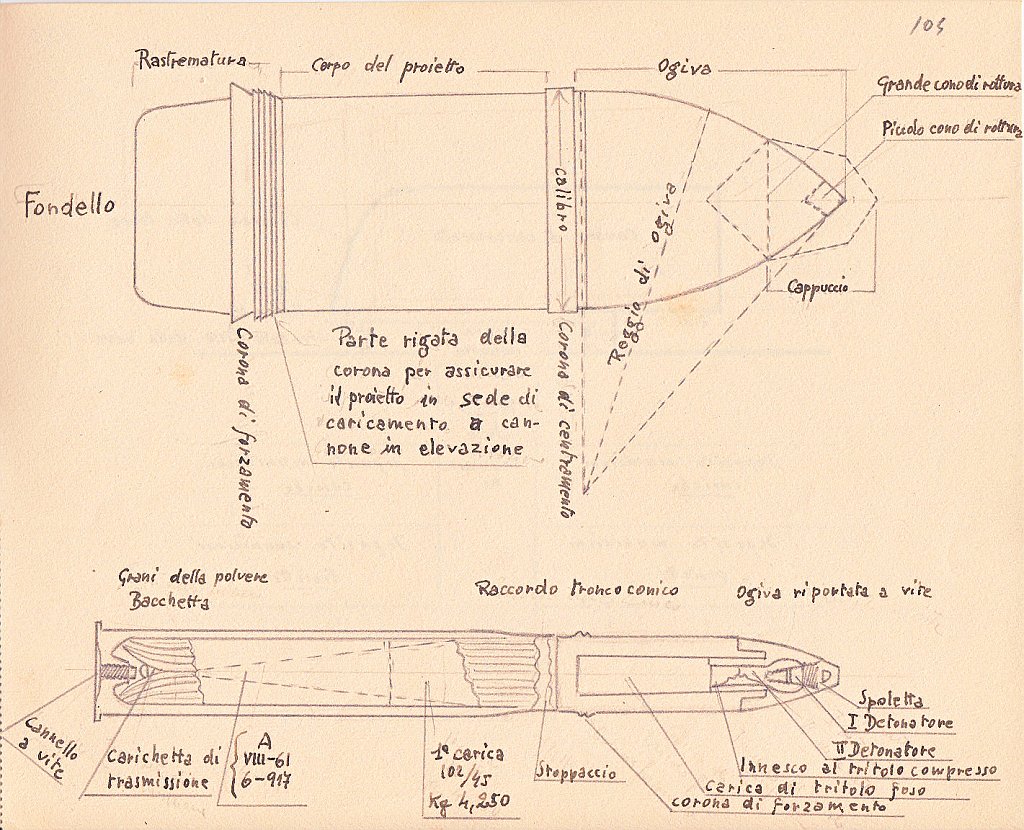 104
Rastrematura
Corpo del proietto
Ogiva
Grande cono di rottura
Piccolo cono di rottura
Fondello
calibro
Raggio di ogiva
Cappuccio
Corona di forzamento
Parte rigata della
corona per assicurare
il proietto in sede di
caricamento a can-
none in elevazione
Corona di centramento
Grani della polvere
Bacchetta
Raccordo tronco conico
Ogiva riportata a vite
Cannello
a vite
Carichetta di
trasmissione
A
VIII-61
6-917
1ª carica
102/45
Kg 4,250
Stoppaccio
Spoletta
I Detonatore
II Detonatore
Innesco al tritolo compresso
Carica di tritolo fuso
corona di forzamento